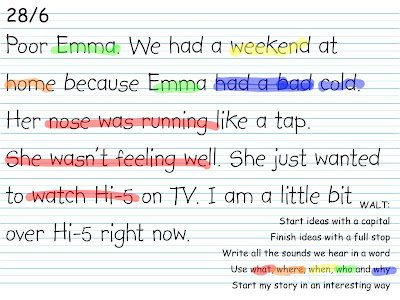 28/6
Poor Emma. We had a weekend at
home because Emma had a bad cold.
Her nose was running like a tap.
She wasn't feeling well. She just wanted
to watch Hi-5 on TV. I am a little bit
over Hi-5 right now.
WALT:
Start ideas with a capital
Finish ideas with a full stop
Write all the sounds we hear in a word
Use what, where, when, who and why
Start my story in an interesting way